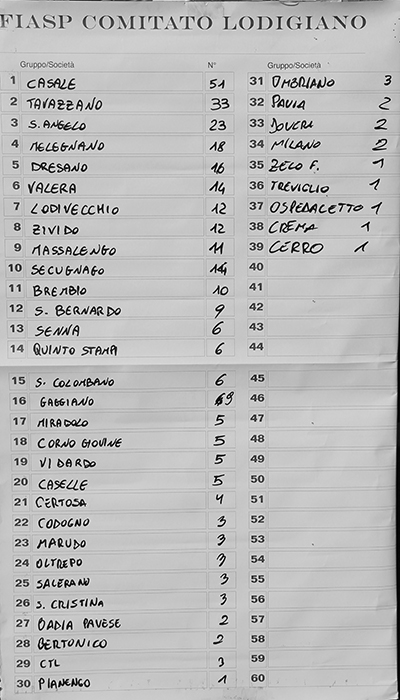 FIASP COMITATO LODIGIANO
Gruppo/Società N° Gruppo/Società
1 CASALE 51
2 TAVAZZANO 33
3 S. ANGELO 23
4 MELEGNANO 18
5 DRESANO 16
6 VALERA 14
7 LODIVECCHIO 12
8 ZIVIDO 12
9 MASSALENGO 11
10 SECUGNAGO 14
11 BREMBIO 10
12 S. BERNARDO 9
13 SENNA 6
14 QUINTO STAMP 6
15 S. COLOMBANO 6
16 GAGGIANO 9
17 MIRADOLO 5
18 CORNO GIOVINE 5
19 VIDARDO 5
20 CASELLE 5
21 CERTOSA 4
22 CODOGNO 3
23 MARUDO 3
24 OLTREPO 3
25 SALERANO 3
26 S. CRISTINA 3
27 BADIA PAVESE 2
28 BERTONICO 2
29 CTL 3
30 PIANENGO 1
31 OMBRIANO 3
32 PAVIA 2
33 DOVERA 2
34 MILANO 2
35 ZELO F. 1
36 TREVIGLIO 1
37 OSPEDALETTO 1
38 CREMA 1
39 CERRO 1
40
41
42
43
44
45
46
47
48
49
50
51
52
53
54
55
56
57
58
59
60